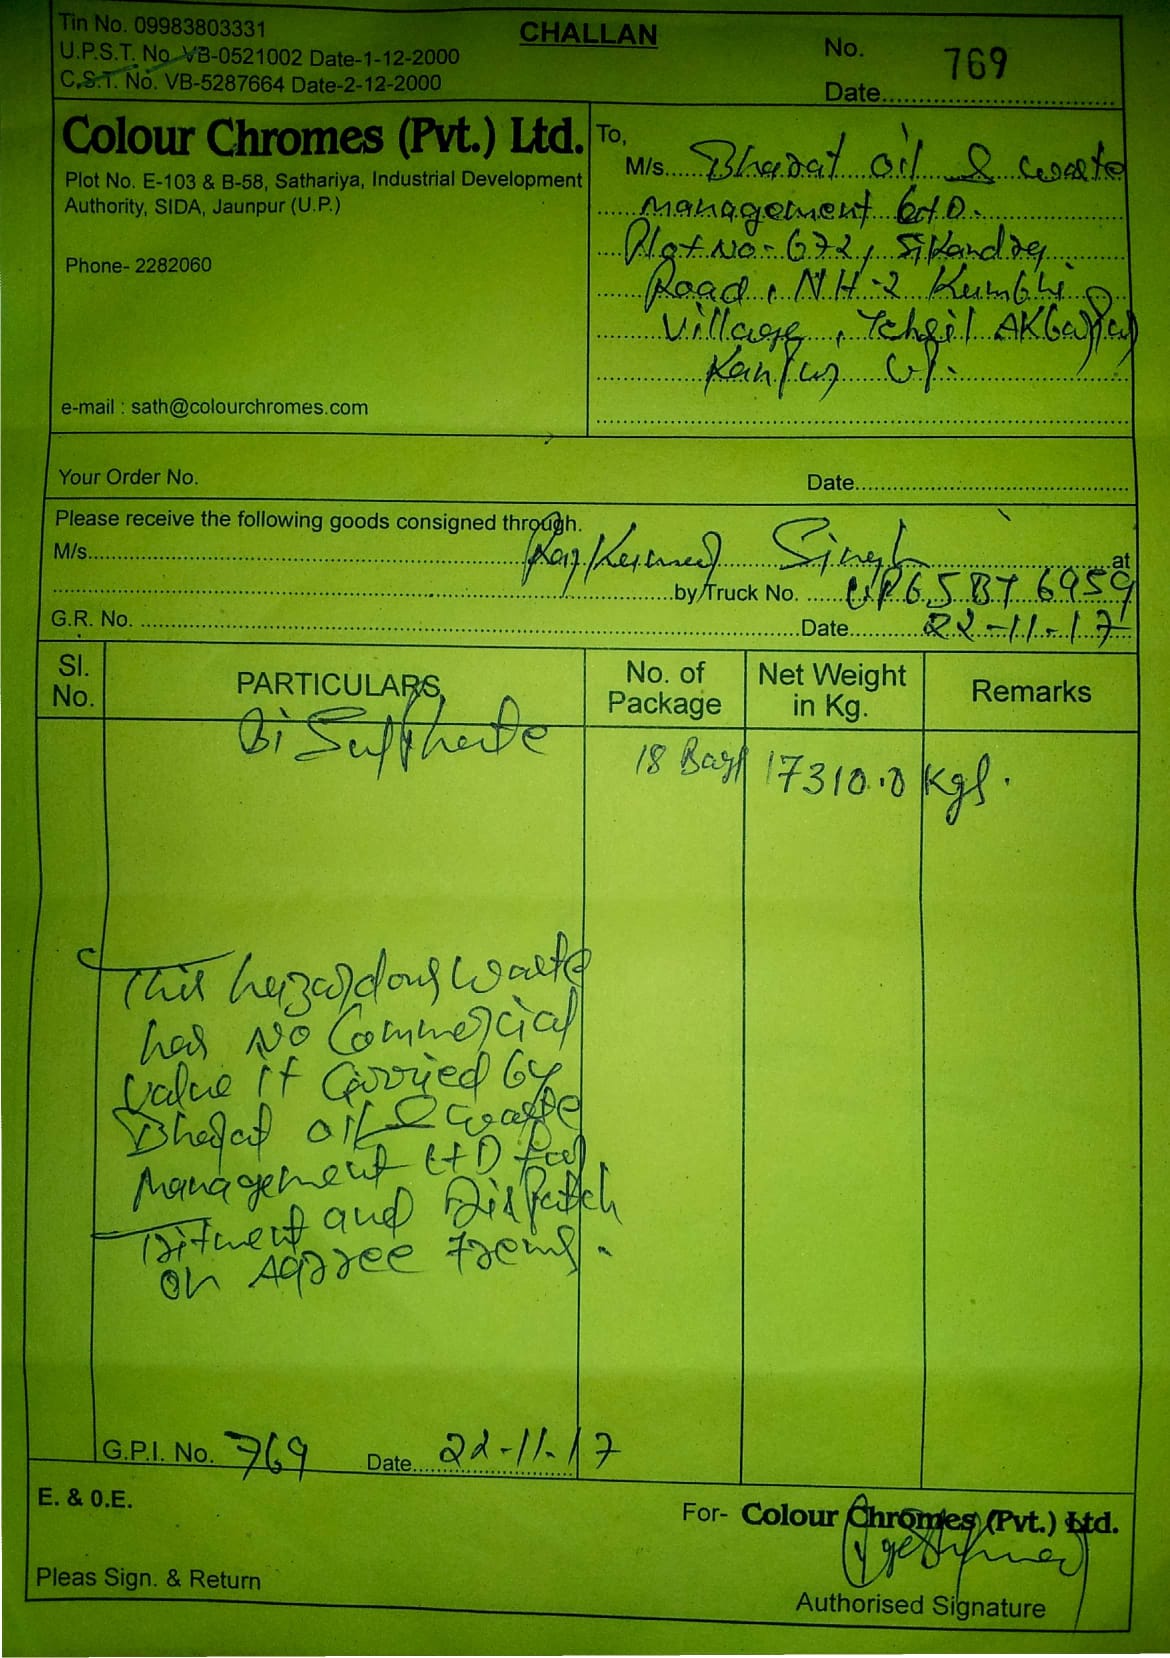 Tin No. 09983803331
U.P.S.T. No. VB-0521002 Date-1-12-2000
C.S.T. No. VB-5287664 Date-2-12-2000
CHALLAN
No. 769
Date
Colour Chromes (Pvt.) Ltd.
Plot No. E-103 & B-58, Sathariya, Industrial Development
Authority, SIDA, Jaunpur (U.P.)
Phone- 2282060
e-mail : sath@colourchromes.com
To,
M/s. Bharat oil & waste
management LtD.
Plot No-672, Sikandra
Road, NH-2 Kumbhi
Village, Tehsil AKbarpur
Kanpur UP.
Your Order No.
Date
Please receive the following goods consigned through.
M/s. RajKumar Singh at
by Truck No. UP65BT 6959
G.R. No. Date 22-11-17
Sl. No. PARTICULARS No. of Package Net Weight in Kg. Remarks
Bi Sulphate 18 Bags 17310.0 Kgs.
This hazardous waste
has No Commercial
value it Carried by
Bharat oil & waste
Management LtD for
and Dispatch
on Agree
G.P.I. No. 769 Date 22-11-17
E. & 0.E.
For- Colour Chromes (Pvt.) Ltd.
Pleas Sign. & Return
Authorised Signature